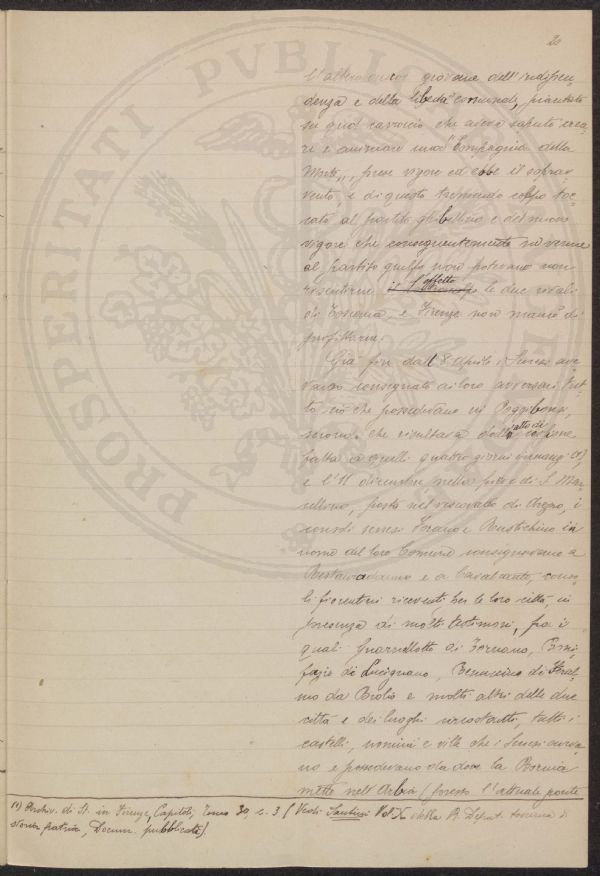 20
l'altro ancor giovane dell'indipen-
denza e della libertà comunale, piantato
su quel carroccio che aveva saputo crea-
re e animare una "Compagnia della
Morte", prese vigore ed ebbe il soprav-
vento, e di questo tremendo colpo toc-
cato al partito ghibellino e del nuovo
vigore che conseguentemente ne venne
al partito guelfo non potevano non
risentirne l'effetto le due rivali
di Toscana, e Firenze non mancò di
profittarne.
Già fin dall'8 Aprile i Senesi ave-
vano consegnato ai loro avversari tut-
to ciò che possedevano in Poggibonsi,
secondo che risultava dall'atto di cessione
fatta a quelli quattro giorni innanzi (1),
e l'11 dicembre nella pieve di S. Mar-
cellino, posta nel vescovado di Arezzo, i
consoli senesi e Rustichino in
nome del loro Comune consegnavano a
Restauradanno e a Cavalcante, conso-
li fiorentini riceventi per la loro città, in
presenza di molti testimoni, fra i
quali Guarnellotto di Tornano, Boni-
fazio di Lucignano, Beruccino di
da Brolio e molti altri delle due
città e dei luoghi circostanti, tutti i
castelli, uomini e ville che i Senesi aveva-
no e possedevano da dove la Bornia
mette nell'Arbia (presso l'attuale ponte
(1) Archiv. di St. in Firenze, Capitoli, Tomo 30, c. 3 (Vedi Santini Vol X della R. Deput. toscana di
storia patria, Docum. pubblicati).
PROSPERITATI PVBLICAE